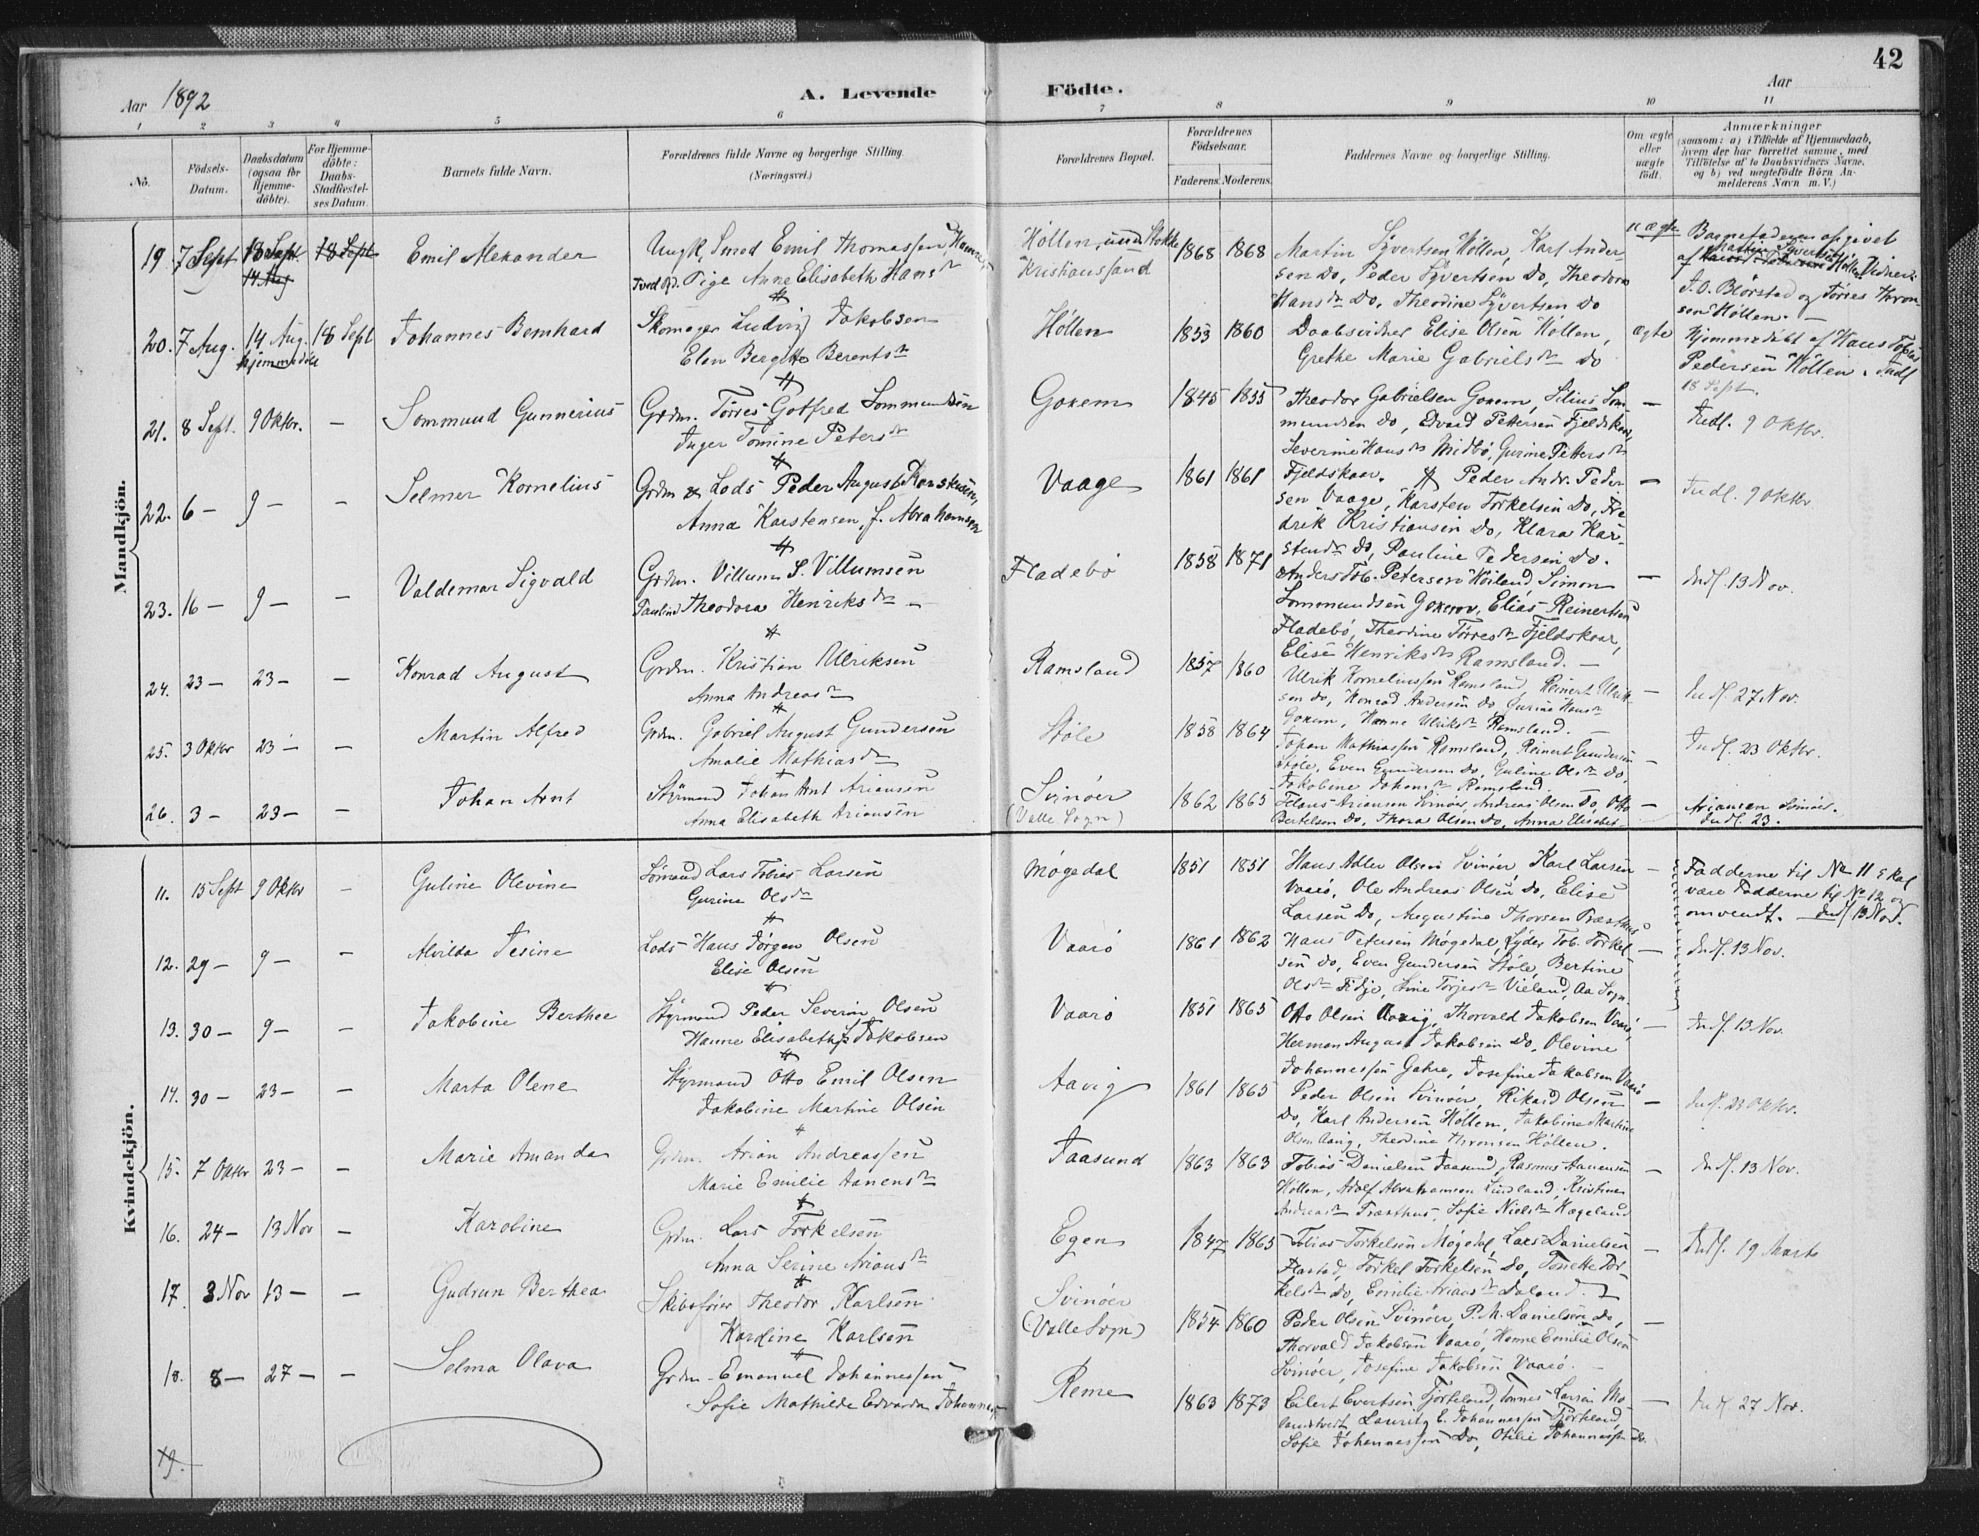 42
Aar 1892
A. Levende Födte.
Aar
1 2 3 4 5 6 7 8 9 10 11
No.
Födsels-Datum.
Daabsdatum (ogsaa for Hjemme-döbte).
For Hjemme-döbte: Daabs-Stadfæstel-ses Datum.
Barnets fulde Navn.
Forældrenes fulde Navne og borgerlige Stilling.
(Næringsvei.)
Forældrenes Bopæl.
Forældrenes Födselsaar.
Faderens. Moderens.
Faddernes Navne og borgerlige Stilling.
Om ægte eller uægte födt.
Anmærkninger
(saasom: a) i Tilfælde af Hjemmedaab,
hvem der har forrettet samme, med
Tilföielse af to Daabsvidners Navne,
og b) ved uægtefödte Börn An-
melderens Navn m. V.)
Mandkjön.
19. 7 Sept 18 Sept. 18 Sept Emil Alexander
14 Aug
Ungk. Smed Emil Thomassen
Pige Anne Elisabeth Hansdr
Höllen
Kristiansand
1868 1868
Martin Syvertsen Höllen, Karl Ander-
sen Do, Peder Syvertsen Do, Theodora
Hansdr Do. Theodine Syvertsen Do
uægte
Barnefaderen opgivet
af Martin Syvertsen Höllen Vidner:
J. O. Blörstad og Törres Thron
sen Höllen. —
20. 7 Aug. 14 Aug. 18 Sept Johannes Bernhard
hjemmedöbt
Skomager Ludvig Jakobsen
Elen Bergitte Berentsdr
Höllen 1853 1860
Daabsvidner Elise Olsen Höllen,
Grethe Marie Gabrielsdr Do
ægte
Hjemmedöbt af Hans Tobias
Pedersen Höllen. Indl
18 Sept.
21. 8 Sept. 9 Oktbr. — Sommund Gunnerius
Grdm. Törres Gotfred Sommundsen
Inger Tomine Petersdr
Goxem 1845 1855
Theodor Gabrielsen Goxem, Silius Som-
mundsen Do, Edvard Pettersen Fjeldskaar,
Severine Hansdr Midbö, Gurine Pettersdr
Fjeldskaar.
— Indl. 9 Oktbr.
22. 6 — 9 — — Selmer Kornelius
Grdm & Lods Peder August Karstensen,
Anna Karstensen, f. Abrahamsen
Vaage 1861 1861
Peder Andr. Peder-
sen Vaage, Karsten Torkelsen Do, Fre-
drik Kristiansen Do, Klara Kar-
stensdr Do, Pauline Pedersen Do.
— Indl. 9 Oktbr
23. 16 — 9 — — Valdemar Sigvald
Grdm. Villum S. Villumsen
Pauline Theodora Henriksdr —
Fladebö 1858 1871
Anders Tob. Petersen Höiland, Simon
Sommundsen Goxem, Elias Reinertsen
Fladebö, Theodine Törresdr Fjeldskaar,
Elise Henriksdr Ramsland. —
— Indl. 13 Nov.
24. 23 — 23 — — Konrad August
Grdm. Kristian Ulriksen
Anna Andreasdr
Ramsland 1857 1860
Ulrik Korneliussen Ramsland, Reinert Ulrik-
sen Do, Konrad Andersen Do, Gurine Hansdr
Goxem, Hanne Ulriksdr Ramsland. —
— Indl. 27 Nov.
25. 3 Oktbr 23 — — Martin Alfred
Grdm. Gabriel August Gundersen
Amalie Mathiasdr
Stöle 1858 1864
Johan Mathiassen Ramsland, Reinert Gundersen
Stöle, Even Gundersen Do, Guline Olsdr Do,
Jakobine Johansdr Ramsland.
— Indl. 23 Oktbr.
26. 3 — 23 — — Johan Arnt
Styrmand Johan Arnt Ariansen
Anna Elisabeth Ariansen
Svinöer
(Valle Sogn)
1862 1865
Ariansen Svinöer, Andreas Olsen Do, Otto
Bertelsen Do, Thora Olsen Do, Anna Elisabet
— Ariansen Svinöer.
Indl. 23.
Kvindekjön.
11. 15 Sept 9 Oktbr — Guline Olevine
Sömand Lars Tobias Larsen
Gurine Olsdr
Mögedal 1851 1851
Hans Adler Olsen Svinöer, Karl Larsen
Vaarö, Ole Andreas Olsen Do, Elise
Larsen Do, Augustine Thorsen Præsthus
— Fadderne til No 11 skal
være Fadderne til No 12 og
omvendt. — Indl 13 Nov.
12. 29 — 9 — — Alvilda Jesine
Lods Hans Jörgen Olsen
Elise Olsen
Vaarö 1861 1862
Hans Petersen Mögedal, Lyder Tob. Torkel-
sen Do, Even Gundersen Stöle, Bertine
Olsdr Fidje, Sine Torjesdr Vieland, Aa Sogn.
— Indl. 13 Nov.
13. 30 — 9 — — Jakobine Berthea
Styrmand Peder Severin Olsen
Hanne Elisabeth Jakobsen
Vaarö 1851 1865
Otto Olsen Aavig, Thorvald Jakobsen Vaarö,
Herman August Jakobsen Do, Olevine
Johannessen Gahre, Josefine Jakobsen Vaarö
— Indl. 13 Nov.
14. 30 — 23 — — Marta Olene
Styrmand Otto Emil Olsen
Jakobine Martine Olsen
Aavig 1861 1865
Peder Olsen Svinöer, Rikard Olsen
Do, Karl Andersen Höllen, Jakobine Martine
Olsen Aavig, Theodine Thronsen Höllen.
— Indl. 23 Oktbr.
15. 7 Oktbr 23 — — Marie Amanda
Grdm. Arian Andreassen
Marie Emilie Aanensdr
Faasund 1863 1863
Tobias Danielsen Faasund, Rasmus Aanensen
Höllen, Adolf Abrahamsen Lindland, Kristine
Andreasdr Præsthus, Sofie Nielsdr Hægeland
— Indl. 13 Nov.
16. 24 — 13 Nov — Karoline
Grdm. Lars Torkelsen
Anna Serine Ariansdr
Egen 1847 1865
Tobias Torkelsen Mögedal, Lars Danielsen
Flastad, Torkel Torkelsen Do, Tonette Tor-
kelsdr Do, Emilie Ariansdr Daland.
— Indl. 19 Marts
17. 3 Nov 13 — — Gudrun Berthea
Skibsförer Theodor Karlsen
Karoline Karlsen
Svinöer
(Valle Sogn)
1854 1860
Peder Olsen Svinöer, P. M. Danielsen Do,
Thorvald Jakobsen Vaarö, Hanne Emilie Olsen
Svinöer, Josefine Jakobsen Vaarö. —
—
18. 8 — 27 — — Selma Olava
Grdm. Emanuel Johannessen
Sofie Mathilde Edvarda Johannes
Reme 1863 1873
Eilert Evertsen Tjörteland, Tönnes Larsen
Lauritz E. Johannessen Tjörteland,
Sofie Johannessen Do, Otilie Johannessen Do.
— Indl 27 Nov.
19.